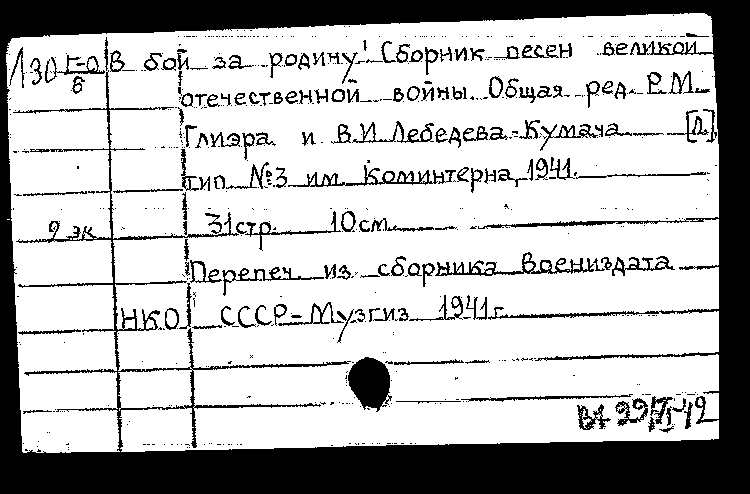 130 Г-0/6 В бой за родину! Сборник песен великой
отечественной войны. Общая ред. Р.М.
Глиэра и В.И. Лебедева-Кумача [Л.],
тип. №3 им. Коминтерна, 1941.
9 эк 31стр. 10см.
Перепеч. из сборника Воениздата
НКО СССР-Музгиз 1941г.